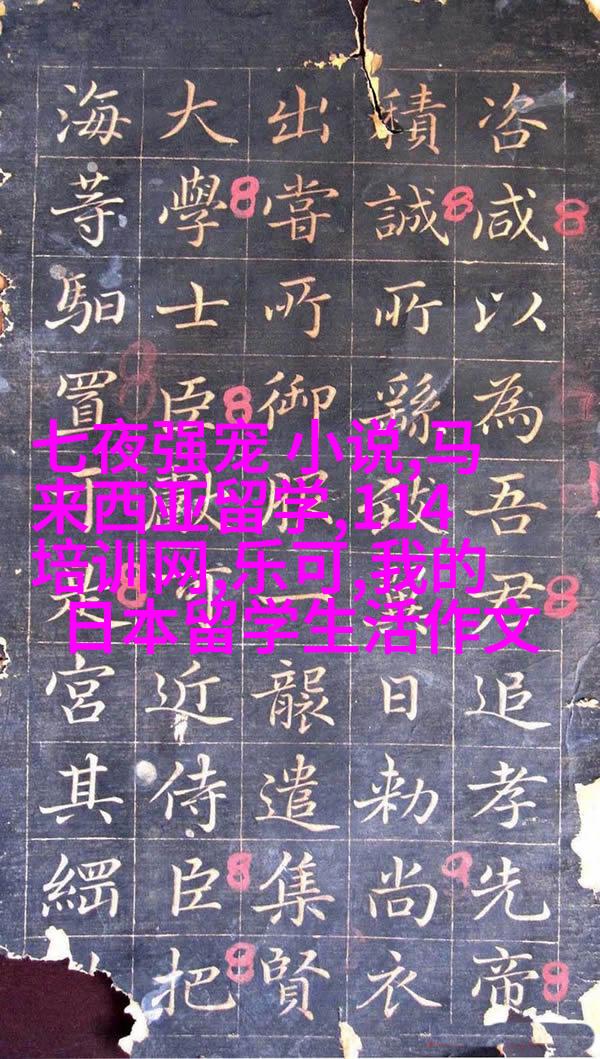 咨咸以為吾君追孝先帝
積誠所繇致日勑尚衣
出嘗所御服一襲遣集賢
大學士臣近侍臣把
海等馹置是宮其
七夜强宠 小说,马
来西亚留学,114
培训网,乐可,我的
日本留学生活作文